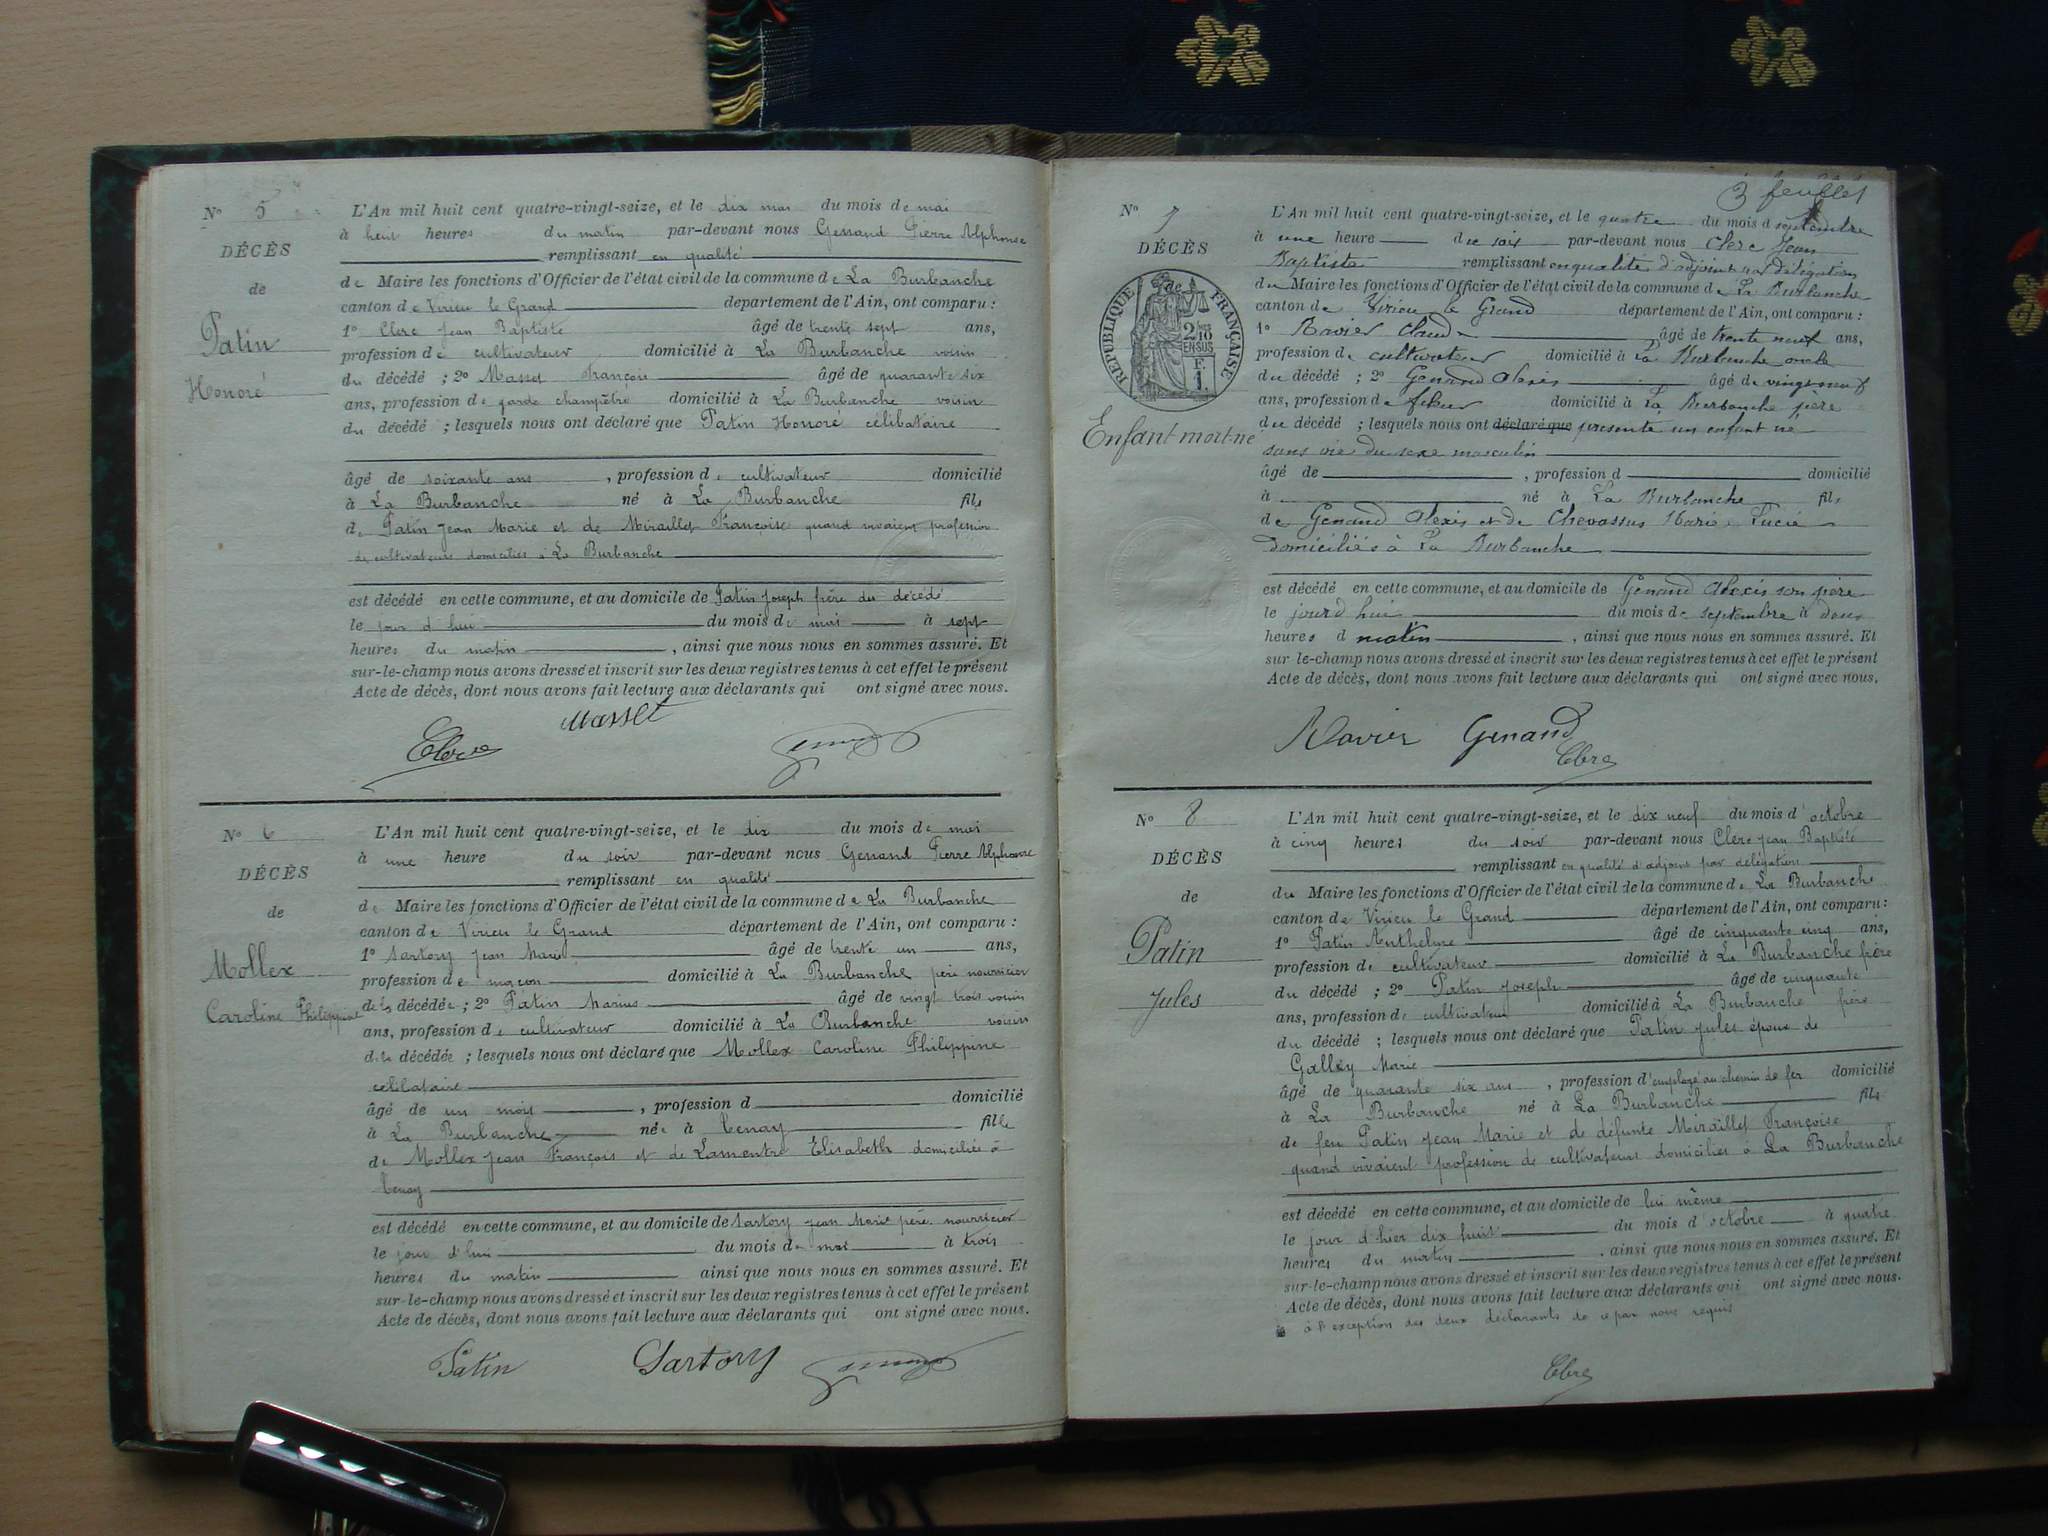 N° 5
DÉCÈS
de
Patin
Honoré
L'An mil huit cent quatre-vingt-seize, et le dix mai du mois de mai
à huit heures du matin par-devant nous Genand Pierre Alphonse
remplissant en qualité
de Maire les fonctions d'Officier de l'état civil de la commune de La Burbanche
canton de Virieu le Grand département de l'Ain, ont comparu :
1° Clerc Jean Baptiste âgé de trente sept ans,
profession de cultivateur domicilié à La Burbanche voisin
du décédé ; 2° Masset François âgé de quarante six
ans, profession de garde champêtre domicilié à La Burbanche voisin
du décédé ; lesquels nous ont déclaré que Patin Honoré célibataire
âgé de soixante ans , profession de cultivateur domicilié
à La Burbanche né à La Burbanche fils
de Patin Jean Marie et de Miraillet Françoise quand vivaient profession
de cultivateurs domiciliés à La Burbanche
est décédé en cette commune, et au domicile de Patin Joseph frère du décédé
le jour d'hui du mois de mai à sept
heures du matin , ainsi que nous nous en sommes assuré. Et
sur-le-champ nous avons dressé et inscrit sur les deux registres tenus à cet effet le présent
Acte de décès, dont nous avons fait lecture aux déclarants qui ont signé avec nous.
Clerc Masset
N° 6
DÉCÈS
de
Mollex
Caroline Philippine
L'An mil huit cent quatre-vingt-seize, et le dix du mois de mai
à une heure du soir par-devant nous Genand Pierre Alphonse
remplissant en qualité
de Maire les fonctions d'Officier de l'état civil de la commune de La Burbanche
canton de Virieu le Grand département de l'Ain, ont comparu :
1° Sartory Jean Marie âgé de trente un ans,
profession de maçon domicilié à La Burbanche père nourricier
de la décédée ; 2° Patin Marius âgé de vingt trois voisin
ans, profession de cultivateur domicilié à La Burbanche voisin
de la décédée ; lesquels nous ont déclaré que Mollex Caroline Philippine
célibataire
âgé de un mois , profession d domicilié
à La Burbanche née à Tenay fille
de Mollex Jean François et de Lamentre Elisabeth domiciliés à
Tenay
est décédé en cette commune, et au domicile de Sartory Jean Marie père nourricier
le jour d'hui du mois de mai à trois
heures du matin ainsi que nous nous en sommes assuré. Et
sur-le-champ nous avons dressé et inscrit sur les deux registres tenus à cet effet le présent
Acte de décès, dont nous avons fait lecture aux déclarants qui ont signé avec nous.
Patin Sartory
3 feuillet
N° 7
DÉCÈS
de
RÉPUBLIQUE FRANÇAISE
2/10
EN SUS
F.
1
Enfant mort-né
L'An mil huit cent quatre-vingt-seize, et le quatre du mois d septembre
à une heure du soir par-devant nous Clerc Jean
Baptiste remplissant en qualité d'adjoint par délégation
du Maire les fonctions d'Officier de l'état civil de la commune de La Burbanche
canton de Virieu le Grand département de l'Ain, ont comparu :
1° Ravier Claude âgé de trente neuf ans,
profession de cultivateur domicilié à La Burbanche oncle
du décédé ; 2° Genand Alexis âgé de vingt neuf
ans, profession de domicilié à La Burbanche père
du décédé ; lesquels nous ont déclaré que présenté un enfant né
sans vie du sexe masculin
âgé de , profession d domicilié
à né à La Burbanche fils
de Genand Alexis et de Chevassus Marie Lucie
domiciliés à La Burbanche
est décédé en cette commune, et au domicile de Genand Alexis son père
le jourd'hui du mois de septembre à deux
heures d matin , ainsi que nous nous en sommes assuré. Et
sur-le-champ nous avons dressé et inscrit sur les deux registres tenus à cet effet le présent
Acte de décès, dont nous avons fait lecture aux déclarants qui ont signé avec nous.
Ravier Genand
Clerc
N° 8
DÉCÈS
de
Patin
Jules
L'An mil huit cent quatre-vingt-seize, et le dix neuf du mois d'octobre
à cinq heures du soir par-devant nous Clerc Jean Baptiste
remplissant en qualité d'adjoint par délégation
du Maire les fonctions d'Officier de l'état civil de la commune de La Burbanche
canton de Virieu le Grand département de l'Ain, ont comparu :
1° Patin Anthelme âgé de cinquante cinq ans,
profession de cultivateur domicilié à La Burbanche frère
du décédé ; 2° Patin Joseph âgé de cinquante
ans, profession de cultivateur domicilié à La Burbanche frère
du décédé ; lesquels nous ont déclaré que Patin Jules époux de
Galley Marie
âgé de quarante six ans , profession d'employé au chemin de fer domicilié
à La Burbanche né à La Burbanche fils
de feu Patin Jean Marie et de défunte Miraillet Françoise
quand vivaient profession de cultivateurs domiciliés à La Burbanche
est décédé en cette commune, et au domicile de lui même
le jour d'hier dix huit du mois d'octobre à quatre
heures du matin , ainsi que nous nous en sommes assuré. Et
sur-le-champ nous avons dressé et inscrit sur les deux registres tenus à cet effet le présent
Acte de décès, dont nous avons fait lecture aux déclarants qui ont signé avec nous.
à l'exception des deux déclarants de ce par nous requis
Clerc